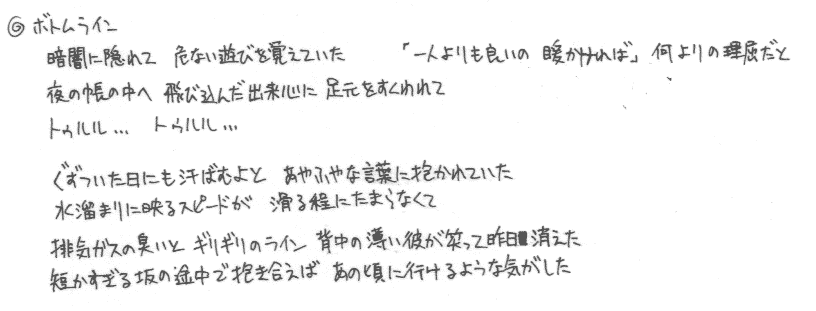 ◎ ボトムライン
暗闇に隠れて 危ない遊びを覚えていた 「一人よりも良いの 暖かければ」 何よりの理屈だと
夜の帳の中へ 飛び込んだ出来心に 足元をすくわれて
トゥルル… トゥルル…
ぐずついた日にも汗ばむよと あやふやな言葉に抱かれていた
水溜まりに映るスピードが 滑る程にたまらなくて
排気ガスの臭いと ギリギリのライン 背中の薄い彼が笑って昨日消えた
短かすぎる坂の途中で抱き合えば あの頃に行けるような気がした